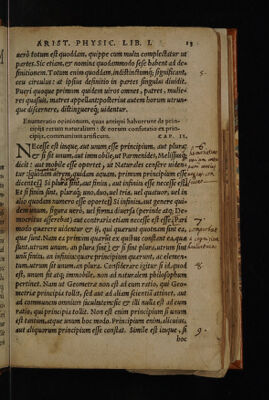 ARIST. PHYSIC. LIB. I. 13
uerò totum est quoddam, quippe cum multa complectatur ut
partes. Sic etiam, et nomina quodammodo sese habent ad de-
finitionem. Totum enim quoddam, indistincteq; significant,
ceu circulus: at ipsius definitio in partes singulas diuidit.
Pueri quoque primum quidem uiros omnes, patres, mulie-
res quasuis, matres appellant: posterius autem horum utrun-
que discernere, distinguereq; uidentur.
5.
Enumeratio opinionum, quas antiqui habuerunt de prin-
cipijs rerum naturalium: & eorum confutatio ex prin-
cipijs communium artificum. CAP. II.
Necesse est itaque, aut unum esse principium, aut plura,
& si sit unum, aut immobile, ut Parmenides, Melissusq;
dicit: aut mobile esse oportet, ut Naturales censere uiden-
tur
aërem, quidam aquam, primum principium esse
dicentes. Si plura sint, aut finita, aut infinita esse necesse est.
Et si finita sint, pluraq; uno, duo, uel tria, uel quatuor, uel in
alio quodam numero esse oportet. Si infinita, aut genere qui-
dem unum, figura uero, aut forma diuersa (perinde atq; De-
mocritus asserebat) aut contraria etiam necesse est esse. Pari
modo quærere uidentur et ij, qui querunt quotnam sint ea,
quæ sunt. Nam ex primum quærunt ex quibus constant ea, quæ
sunt, utrum unum, an plura sint: & si sint plura, utrum sint
finita, an infinita: quare principium, ac elemen-
tum, utrum sit unum, an plura. Considerare igitur si id, quod
est, unum sit atq; immobile, non ad naturalem philosophum
pertinet. Nam ut Geometræ non est ad eum ratio, qui Geo-
metriæ principia tollit, sed aut ad aliam scientiā attinet, aut
ad communem omnium: sic est nulla est ad
eum ratio, qui hæc principia tollit. Non est enim principium si unum
est tantum, atque unum hoc modo. Principium enim, alicuius,
aut aliquorum principium esse constat. Simile est itaque, si
hoc
6.
7.
8.
9.